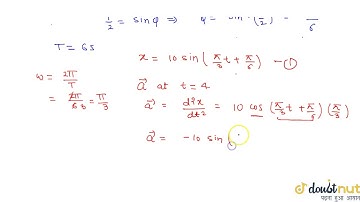 1/2 = sin φ ⇒ φ = sin (π/2) = π/6
T = 6s
x = 10 sin (π/3 t + π/6) — ①
ω = 2π/T
= 2π/6 3 = π/3
a⃗ at t = 4
a⃗ = d²x/dt² = 10 cos (π/3 t + π/6) (π/3)
a⃗ = -10 sin (
doubtnut
पढ़ना हुआ आसान